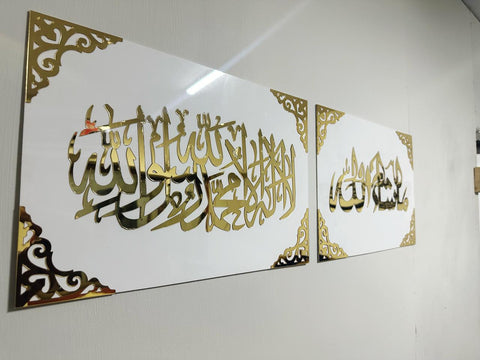 لا إله إلا الله محمد رسول الله
ما شاء الله